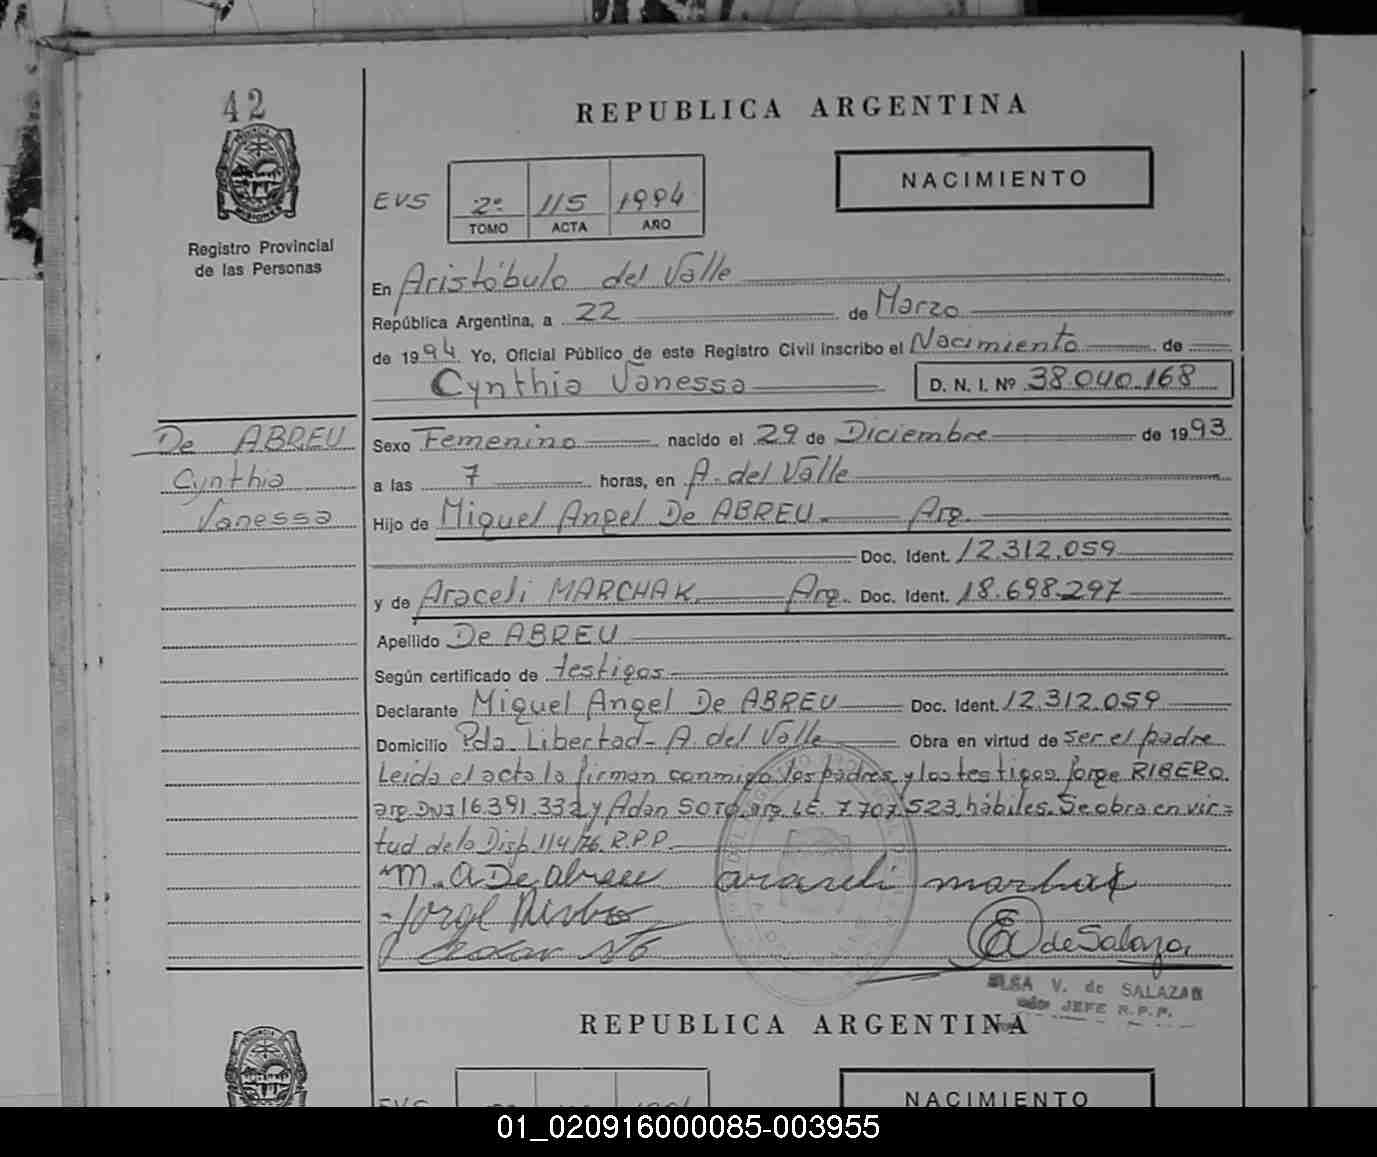 42
REPUBLICA ARGENTINA
NACIMIENTO
EVS 2º 115 1994
TOMO ACTA AÑO
Registro Provincial
de las Personas
En Aristóbulo del Valle
República Argentina, a 22 de Marzo
de 1994 Yo, Oficial Público de este Registro Civil inscribo el Nacimiento de
Cynthia Vanessa D. N. I. Nº 38.040.168
De ABREU
Cynthia
Vanessa
Sexo Femenino nacido el 29 de Diciembre de 1993
a las 7 horas, en A. del Valle
Hijo de Miguel Angel De ABREU. Arg.
Doc. Ident. 12.312.059
y de Araceli MARCHAK Arg. Doc. Ident. 18.698.297
Apellido De ABREU
Según certificado de testigos
Declarante Miguel Angel De ABREU Doc. Ident. 12.312.059
Domicilio Pda. Libertad - A. del Valle Obra en virtud de ser el padre
Leída el acta la firman conmigo los padres y los testigos Jorge RIBERO
arg. DNI 16.391.332 y Adan SOTO, arg. L.E. 7.707.523, hábiles. Se obra en vir=
tud de la Disp. 114/76. R.P.P.
M. A De abreu araceli marchak
Jorge
de Salazar
ELSA V. de SALAZAR
JEFE R.P.P.
REPUBLICA ARGENTINA
EVS
NACIMIENTO
01_020916000085-003955